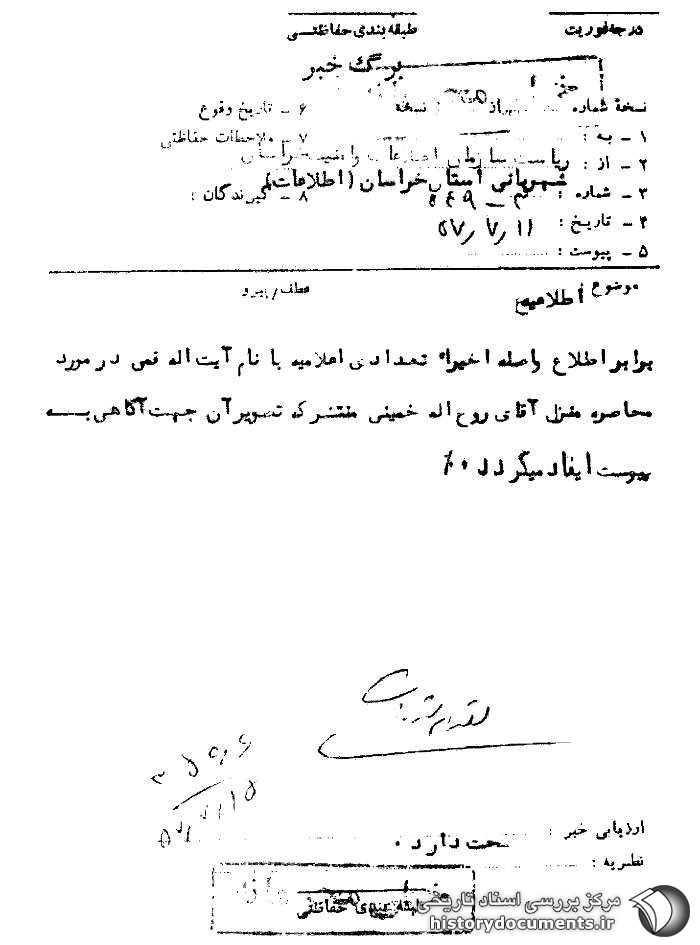 درجه فوریت
طبقه بندی حفاظتی
برگ خبر
نسخهٔ شماره از نسخه
۱ - به : ریاست سازمان اطلاعات و امنیت خراسان
۲ - از : شهربانی استان خراسان (اطلاعات)
۳ - شماره :
۴ - تاریخ : ۵۷/۷/۱۱
۵ - پیوست :
۶ - تاریخ وقوع
۷ - ملاحظات حفاظتی
۸ - گیرندگان :
موضوع : اطلاعیه
عطف/پیرو
برابر اطلاع واصله اخیراً تعدادی اعلامیه با نام آیت اله قمی در مورد
محاصره منزل آقای روح اله خمینی منتشر که تصویر آن جهت آگاهی به
پیوست ایفاد میگردد ٠/
۵۷/۷/۱۵
ارزیابی خبر : صحت دارد ٠
نظریه :
طبقه بندی حفاظتی
مرکز بررسی اسناد تاریخی
historydocuments.ir